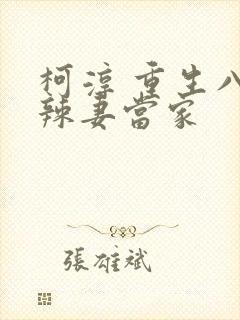 柯淳 重生八
辣妻當家
張雄斌